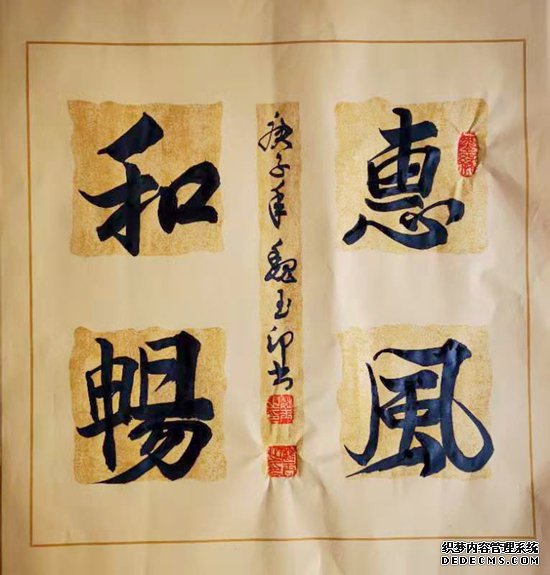 惠風
和暢
庚子年魏玉印书
织梦内容管理系统
DEDECMS.COM